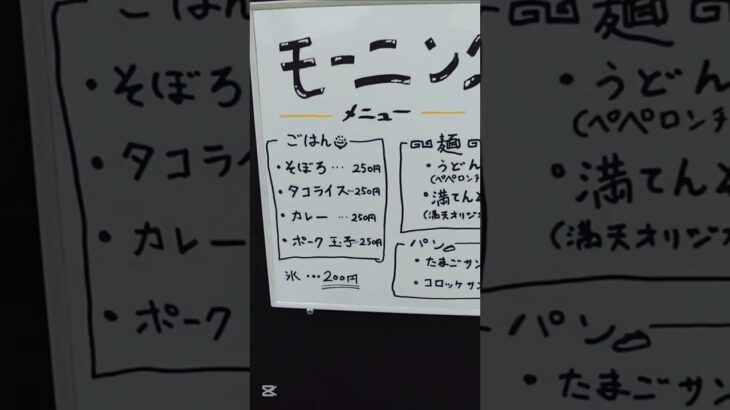 モーニング
メニュー
ごはん
・そぼろ… 250円
・タコライス…250円
・カレー …250円
・ポーク玉子…250円
氷 …200円
麺
・うどん
(ペペロンチ
・満てん
(満天オリジ
パン
・たまごサン
・コロッケサン
・そぼろ
・タコライ
・カレー
・ポーク
麺
・うどん
(ペペロンチ
・満てん
(満天オリジ
パン
・たまごサン